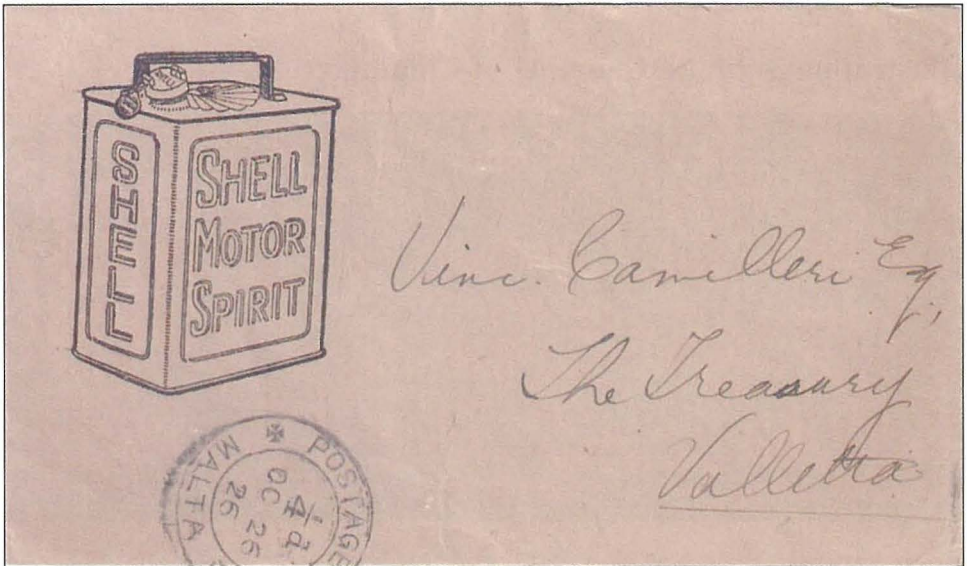 SHELL
SHELL
MOTOR
SPIRIT
Vinc. Camilleri Esq,
The Treasury
Valletta
POSTAGE
MALTA
¼d.
OC 26
26